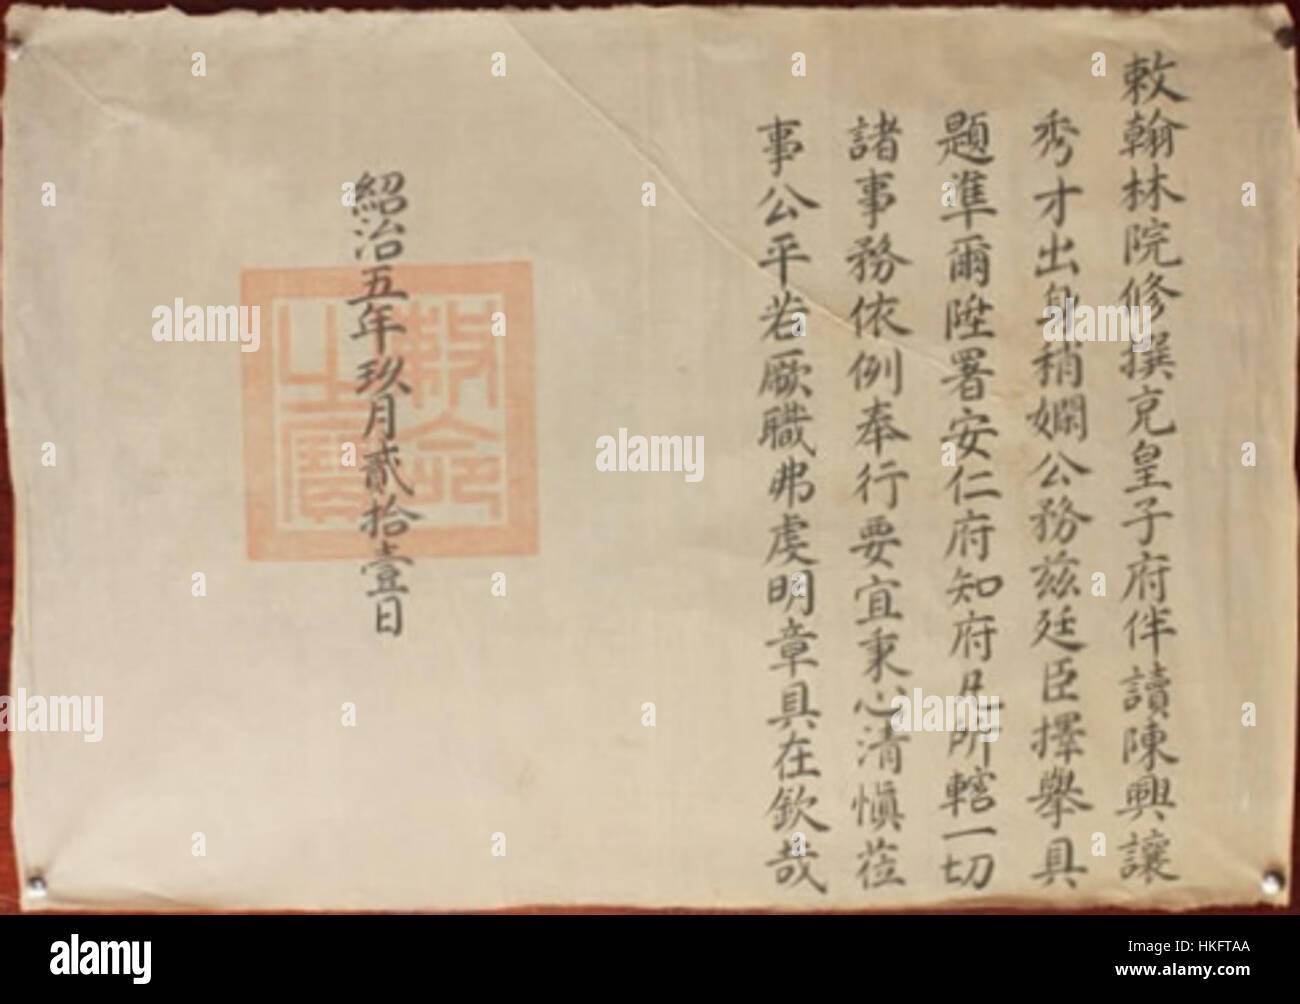 敕翰林院修撰充皇子府伴讀陳興讓
秀才出身稍嫻公務茲廷臣擇舉具
題準爾陞署安仁府知府凡所轄一切
諸事務依例奉行要宜秉心清慎莅
事公平若厥職弗虔明章具在欽哉
紹治五年玖月貳拾壹日
敕命之寶
alamy
alamy
alamy
alamy
alamy
alamy stock photo
HKFTAA
www.alamy.com